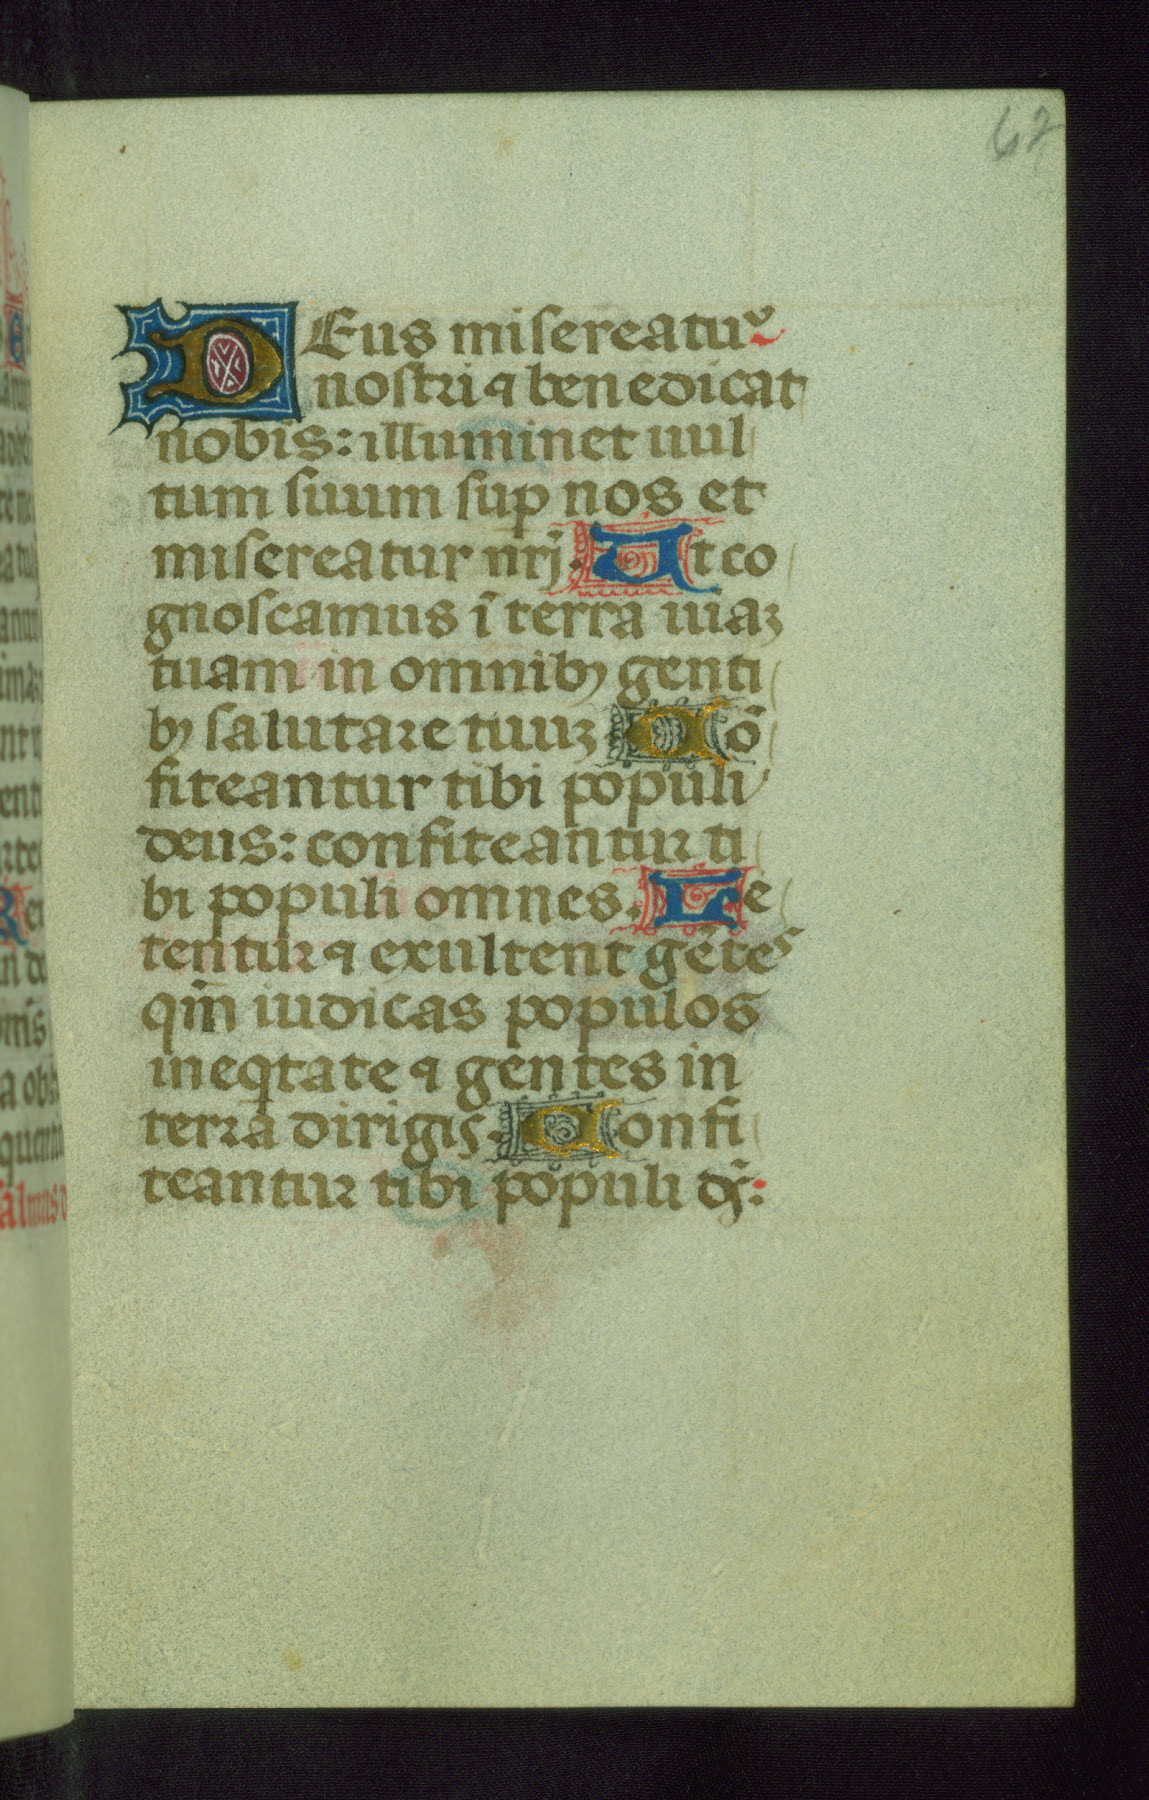 62
DEus misereatur
nostri ⁊ benedicat
nobis: illuminet uul
tum suum sup nos et
misereatur nrī. Ut co
gnoscamus ī terra uiaꝫ
tuam in omnibꝰ genti
bꝰ salutare tuuꝫ Cō
fiteantur tibi populi
deus: confiteantur ti
bi populi omnes. Le
tentur ⁊ exultent gētes
qm̄ iudicas populos
in eqtate ⁊ gentes in
terra dirigis. Confi
teantur tibi populi ds̄: